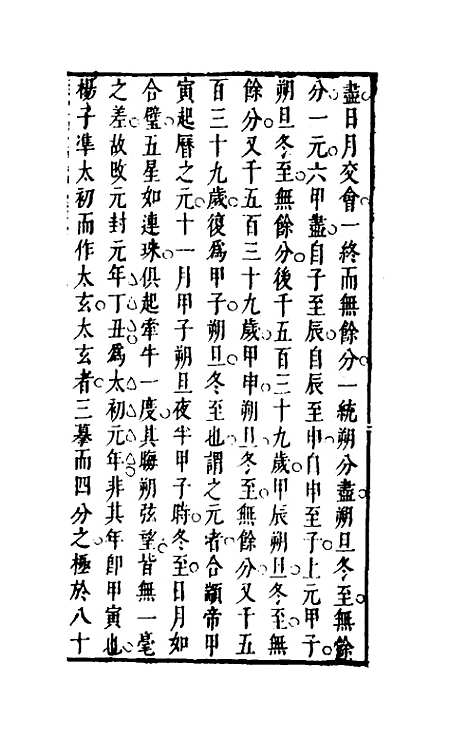 盡日月交會一終而無餘分一統朔分盡朔旦冬至無餘
分一元六甲盡自子至辰自辰至申自申至子上元甲子
朔旦冬至無餘分後千五百三十九歲甲辰朔旦冬至無
餘分又千五百三十九歲甲申朔旦冬至無餘分又千五
百三十九歲復爲甲子朔旦冬至也謂之元者合顓帝甲
寅起曆之元十一月甲子朔旦夜半甲子時冬至日月如
合璧五星如連珠俱起牽牛一度其晦朔弦望皆無一毫
之差故改元封元年丁丑爲太初元年非其年卽甲寅也
楊子準太初而作太玄太玄者三摹而四分之極於八十